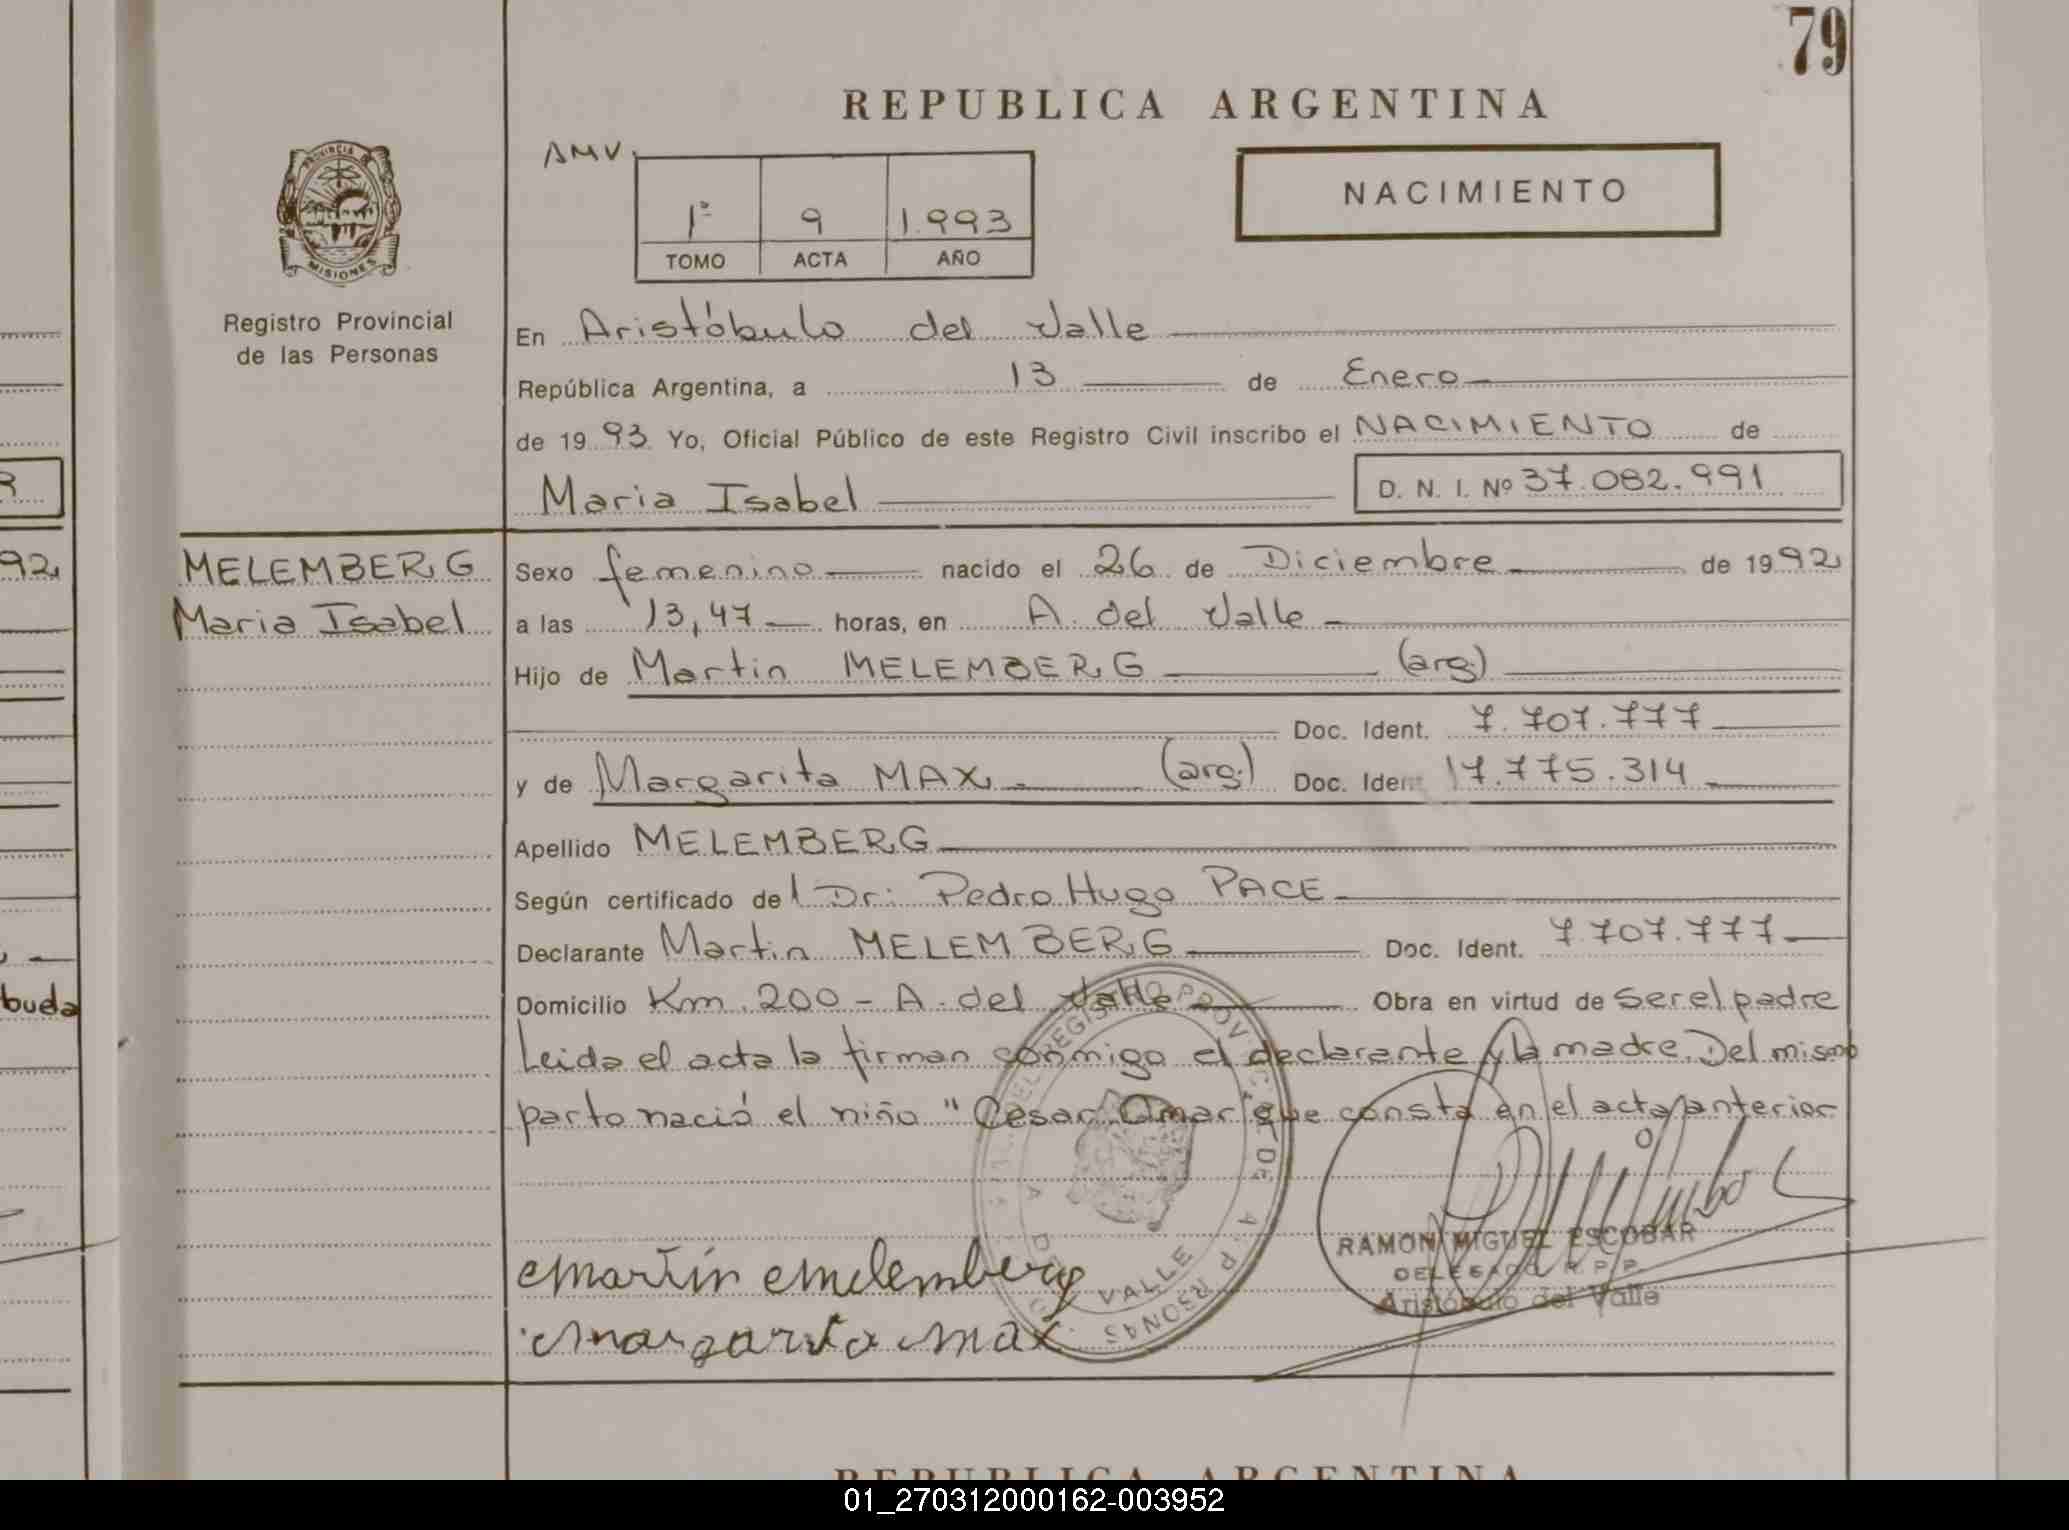 79
REPUBLICA ARGENTINA
AMV.
NACIMIENTO
1º 9 1.993
TOMO ACTA AÑO
PROVINCIA DE
MISIONES
Registro Provincial
de las Personas
En Aristóbulo del Valle
República Argentina, a 13 de Enero
de 19 93 Yo, Oficial Público de este Registro Civil inscribo el NACIMIENTO de
Maria Isabel D. N. I. Nº 37.082.991
92 MELEMBERG Sexo femenino nacido el 26 de Diciembre de 1992
Maria Isabel a las 13,47 horas, en A. del Valle
Hijo de Martin MELEMBERG (arg.)
Doc. Ident. 7.707.777
y de Margarita MAX (arg.) Doc. Ident 17.775.314
Apellido MELEMBERG
Según certificado del Dr. Pedro Hugo PACE
Declarante Martin MELEMBERG Doc. Ident. 7.707.777
buda Domicilio Km. 200 - A. del Valle Obra en virtud de ser el padre
Leida el acta la firman conmigo el declarante y la madre. Del mismo
parto nació el niño "Cesar Omar que consta en el acta anterior
Martín Melemberg
Margarita Max
RAMON MIGUEL ESCOBAR
DELEGADO R. P. P.
Aristóbulo del Valle
VALLE
REPUBLICA ARGENTINA
01_270312000162-003952